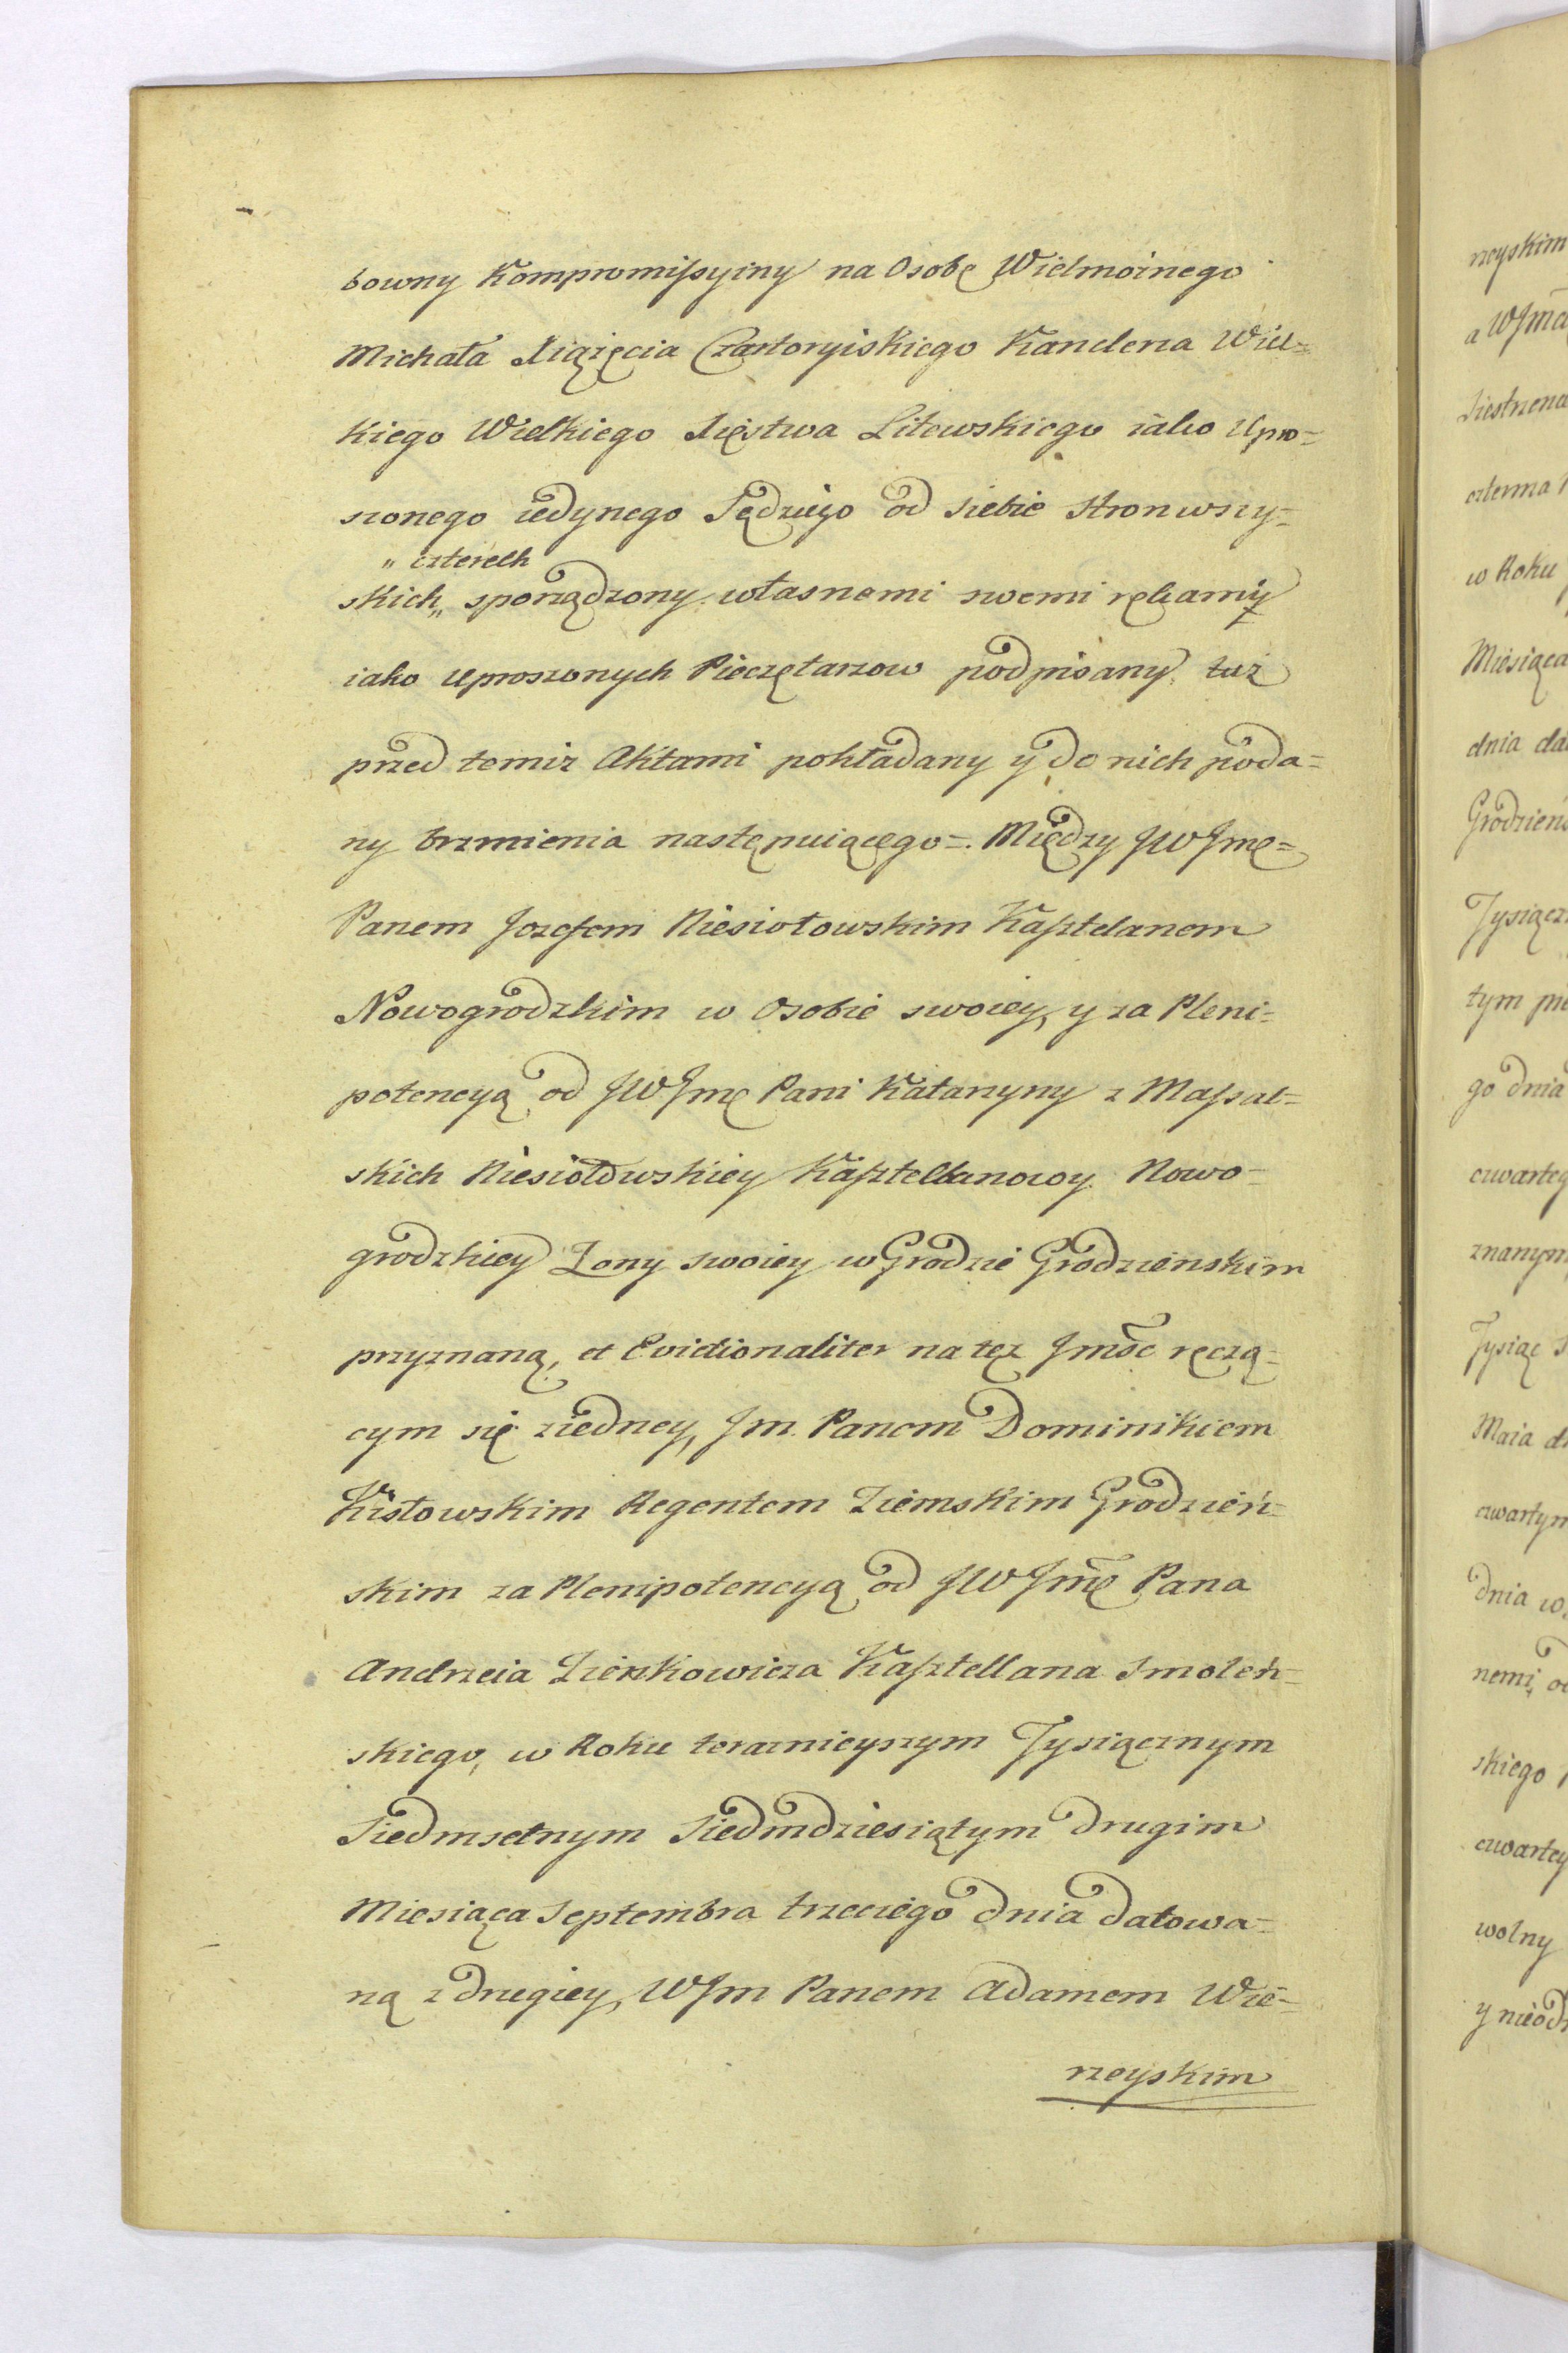 bowny Kompromissyiny na Osobę Wielmoznego
Michała Xiązęcia Czartoryiskiego Kanclerza Wiel=
kiego Wielkiego Xięstwa Litewskiego iako Upro=
szonego iedynego Sędziego od siebie stron wszy=
„ czterech
skich„ sporządzony, własnemi swemi rękamiy
iako uproszonych Pieczętarzow podpisany, tuż
przed temiz Aktami pokładany y do nich poda=
ny brzmienia następuiącego=. Między JWJmę=
Panem Jozefem Niesiołowskim Kasztelanem
Nowogrodzkim w Osobie swoiey, y za Pleni=
potencyą od JWJmę Pani Katarzyny z Massal=
skich Niesiołowskiey Kasztellanowoy Nowo=
grodzkiey Zony swoiey w Grodzie Grodzienskim
przyznaną, et Evictionaliter na tęz Jmść ręczą=
cym się ziedney, Jm. Panem Dominikiem
Kisłowskim Regentem Ziemskim Grodzień=
skim za Plenipotencyą od JWJmę Pana
Andrzeia Zienkowicza Kasztellana Smoleń=
skiego, w Roku teraznieyszym Tysiącznym
Siedmsetnym Siedmdziesiątym drugim
Miesiąca Septembra trzeciego dnia datowa=
ną z drugiey, WJm Panem Adamem Wie=
rzeyskim
rzeyskim
a WJmć
Siestrzena
czterma
w Roku
Miesiąca
dnia da
Grodzieńs
Tysiącz
tym pie
go dnia
czwarteg
znanym
Tysiąc s
Maia d
czwartym
dnia w
nemi, od
skiego
czwartey
wolny
y nieod